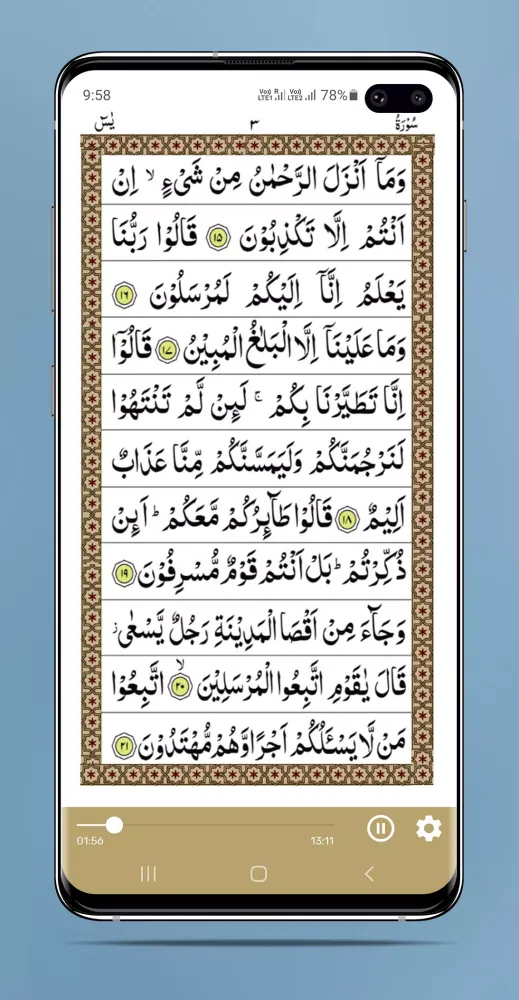 9:58 Vo) R LTE1 Vo) LTE2 78%
سُوْرَةُ ٣ يٰسٓ
وَمَاۤ اَنْزَلَ الرَّحْمٰنُ مِنْ شَیْءٍ ۙ اِنْ
اَنْتُمْ اِلَّا تَكْذِبُوْنَ ۱۵ قَالُوْا رَبُّنَا
يَعْلَمُ اِنَّاۤ اِلَيْكُمْ لَمُرْسَلُوْنَ ۱۶
وَمَا عَلَيْنَاۤ اِلَّا الْبَلٰغُ الْمُبِيْنُ ۱۷ قَالُوْۤا
اِنَّا تَطَيَّرْنَا بِكُمْ ۚ لَىِٕنْ لَّمْ تَنْتَهُوْا
لَنَرْجُمَنَّكُمْ وَلَيَمَسَّنَّكُمْ مِّنَّا عَذَابٌ
اَلِيْمٌ ۱۸ قَالُوْا طَاۤىِٕرُكُمْ مَّعَكُمْ ؕ اَىِٕنْ
ذُكِّرْتُمْ ؕ بَلْ اَنْتُمْ قَوْمٌ مُّسْرِفُوْنَ ۱۹
وَجَآءَ مِنْ اَقْصَا الْمَدِيْنَةِ رَجُلٌ يَّسْعٰى ز
قَالَ يٰقَوْمِ اتَّبِعُوا الْمُرْسَلِيْنَ ۙ ۲۰ اتَّبِعُوْا
مَنْ لَّا يَسْـَٔلُكُمْ اَجْرًا وَّهُمْ مُّهْتَدُوْنَ ۲۱
01:56 13:11